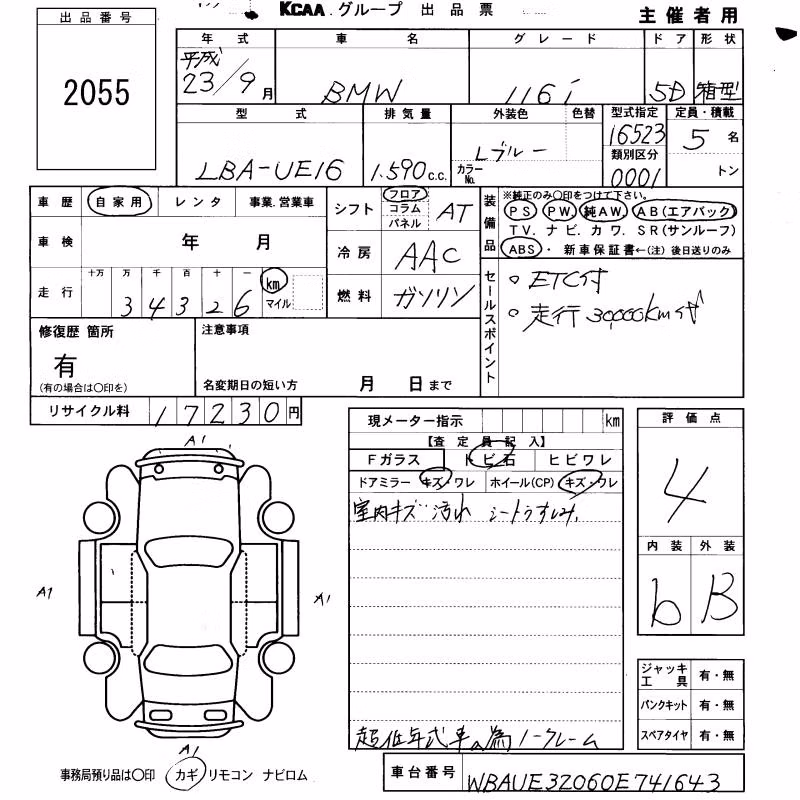 KCAA グループ 出品票
主催者用
出品番号
2055
年式 車名 グレード ドア 形状
平成 23/9月 BMW 116i 5D 箱型
型式 排気量 外装色 色替 型式指定 定員・積載
LBA-UE16 1.590c.c. Lブルー 16523 5名
カラーNo. 類別区分 トン
0001
車歴 自家用 レンタ 事業.営業車
シフト フロア コラム パネル AT
装備品
※純正のみ〇印をつけて下さい。
PS PW 純AW AB(エアバック)
TV. ナビ. カワ. SR(サンルーフ)
ABS・ 新車保証書←(注)後日送りのみ
車検 年 月
冷房 AAC
走行 十万 万 千 百 十 一 km マイル
34326
燃料 ガソリン
セールスポイント
○ ETC付
○ 走行30,000km付
修復歴 箇所
有
(有の場合は〇印を)
注意事項
名変期日の短い方 月 日まで
リサイクル料 17230円
現メーター指示 km
【査定員記入】
Fガラス トビ石 ヒビワレ
ドアミラー キズ・ワレ ホイール(CP) キズ・ワレ
室内キズ 汚れ シートうすじみ
評価点
4
内装 外装
b B
A1
A1
A1
A1
ジャッキ工具 有・無
パンクキット 有・無
スペアタイヤ 有・無
超低年式車の為ノークレーム
事務局預り品は〇印 カギ リモコン ナビロム
車台番号 WBAUE32060E741643